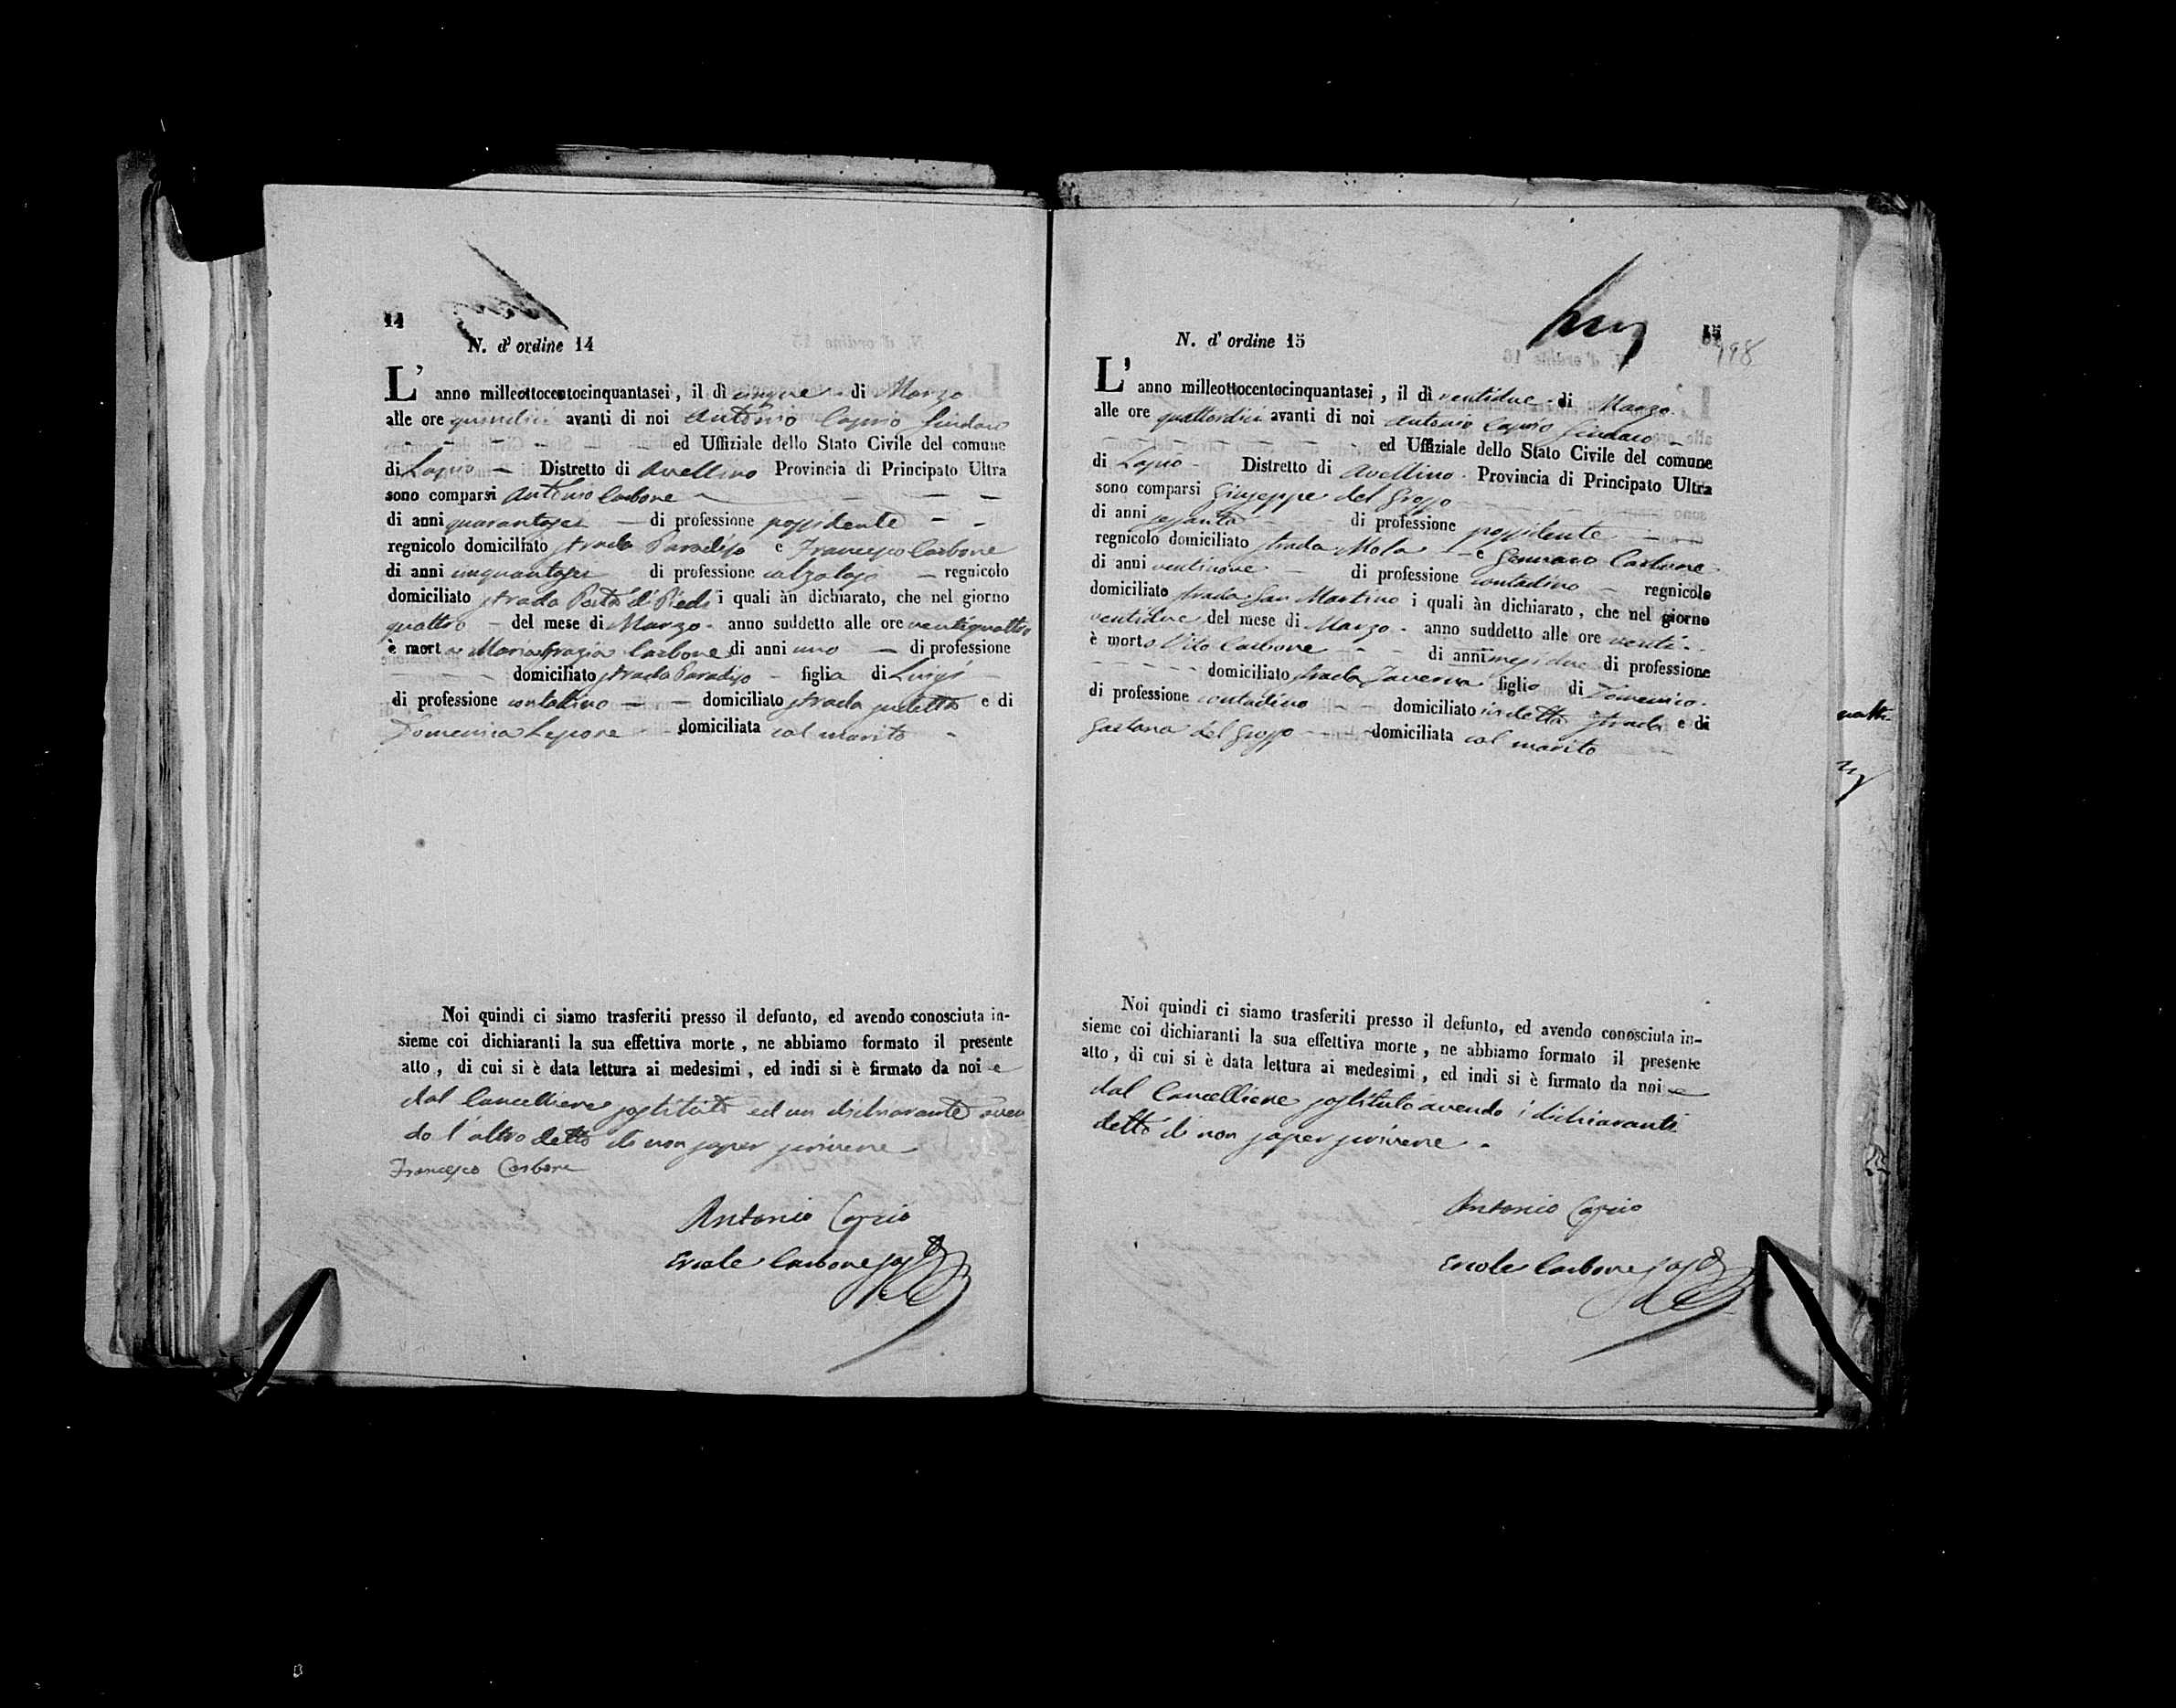 14
N. d' ordine 14
L' anno milleottocentocinquantasei, il dì cinque di Marzo
alle ore quindici avanti di noi Antonio Caprio Sindaco
ed Uffiziale dello Stato Civile del comune
di Lapio — Distretto di Avellino Provincia di Principato Ultra
sono comparsi Antonio Carbone
di anni quarantasei — di professione possidente
regnicolo domiciliato strada Paradiso e Francesco Carbone
di anni cinquantasei di professione calzolajo — regnicolo
domiciliato strada i quali àn dichiarato, che nel giorno
quattro — del mese di Marzo anno suddetto alle ore ventiquattro
è morta Maria Grazia Carbone di anni uno — di professione
domiciliato strada Paradiso — figlia di Luigi
di professione contadino — domiciliato strada suddetta e di
Domenica Lepore domiciliata col marito
Noi quindi ci siamo trasferiti presso il defunto, ed avendo conosciuta in-
sieme coi dichiaranti la sua effettiva morte, ne abbiamo formato il presente
atto, di cui si è data lettura ai medesimi, ed indi si è firmato da noi e
dal Cancelliere sostituto ed un dichiarante aven
do l'altro detto di non saper scrivere
Francesco Carbone
Antonio Caprio
Ercole Carbone
15
198
N. d' ordine 15
L' anno milleottocentocinquantasei, il dì ventidue di Marzo
alle ore quattordici avanti di noi Antonio Caprio Sindaco
ed Uffiziale dello Stato Civile del comune
di Lapio Distretto di Avellino Provincia di Principato Ultra
sono comparsi Giuseppe del Grosso
di anni sessanta di professione possidente
regnicolo domiciliato strada Mola e Gennaro Carbone
di anni ventinove di professione contadino — regnicolo
domiciliato strada San Martino i quali àn dichiarato, che nel giorno
ventidue del mese di Marzo anno suddetto alle ore venti
è morto Vito Carbone di anni mesi due di professione
domiciliato strada Taverna figlio di Domenico
di professione contadino domiciliato in detta strada e di
Gaetana del Grosso domiciliata col marito
Noi quindi ci siamo trasferiti presso il defunto, ed avendo conosciuta in-
sieme coi dichiaranti la sua effettiva morte, ne abbiamo formato il presente
atto, di cui si è data lettura ai medesimi, ed indi si è firmato da noi e
dal Cancelliere sostituto avendo i dichiaranti
detto di non saper scrivere
Antonio Caprio
Ercole Carbone